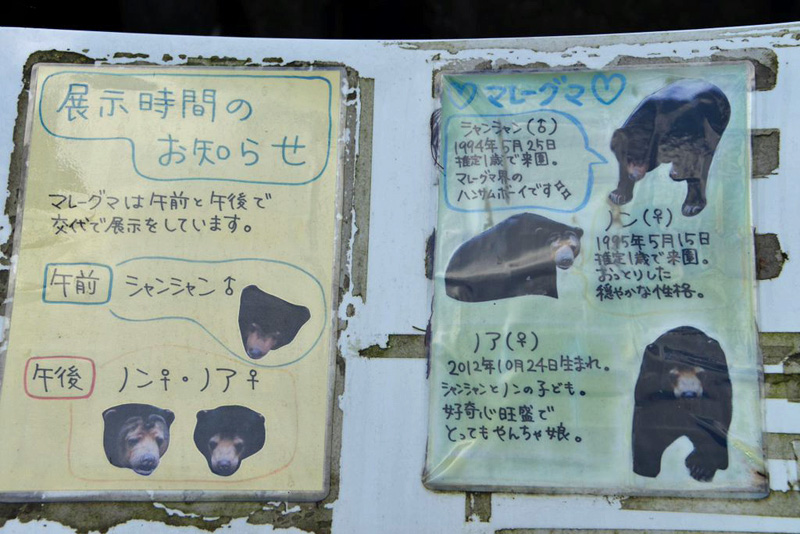 展示時間の
お知らせ
マレーグマは午前と午後で
交代で展示をしています。
午前
シャンシャン♂
午後
ノン♀・ノア♀
♡マレーグマ♡
シャンシャン(♂)
1994年5月25日
推定1歳で来園。
マレーグマ界の
ハンサムボーイです
ノン(♀)
1995年5月15日
推定1歳で来園。
おっとりした
穏やかな性格。
ノア(♀)
2012年10月24日生まれ。
シャンシャンとノンの子ども。
好奇心旺盛で
とってもやんちゃ娘。